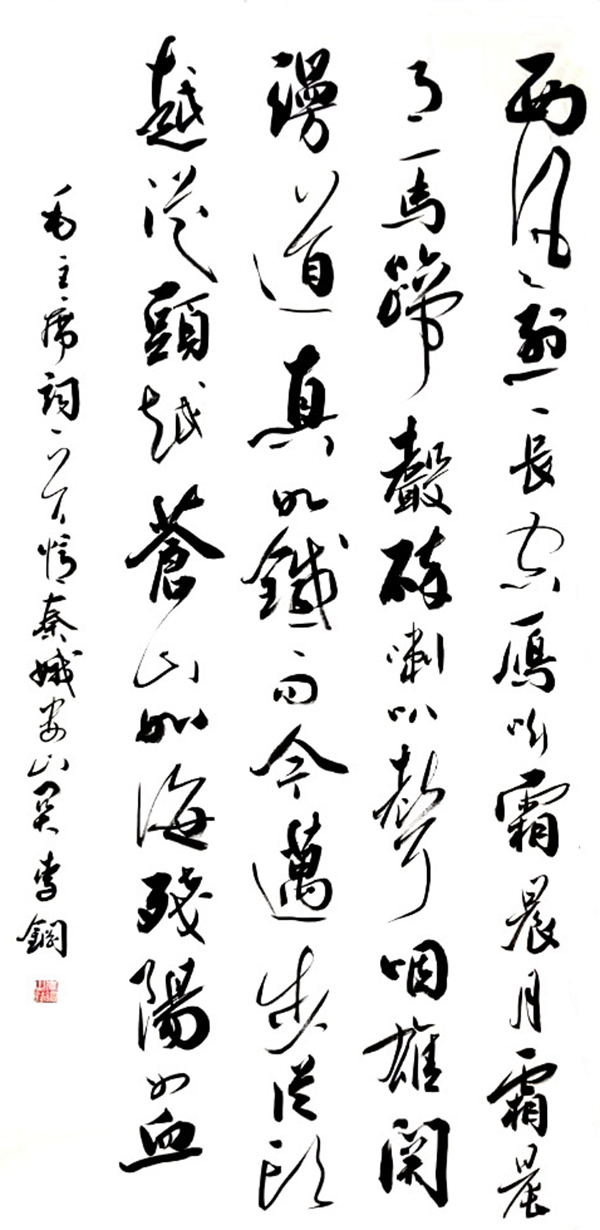 西風烈長空雁叫霜晨月霜晨
月馬蹄聲碎喇叭聲咽雄関
漫道真如鐵而今邁步從頭
越從頭越蒼山如海殘陽如血
毛主席詞一首憶秦娥娄山关李鋼